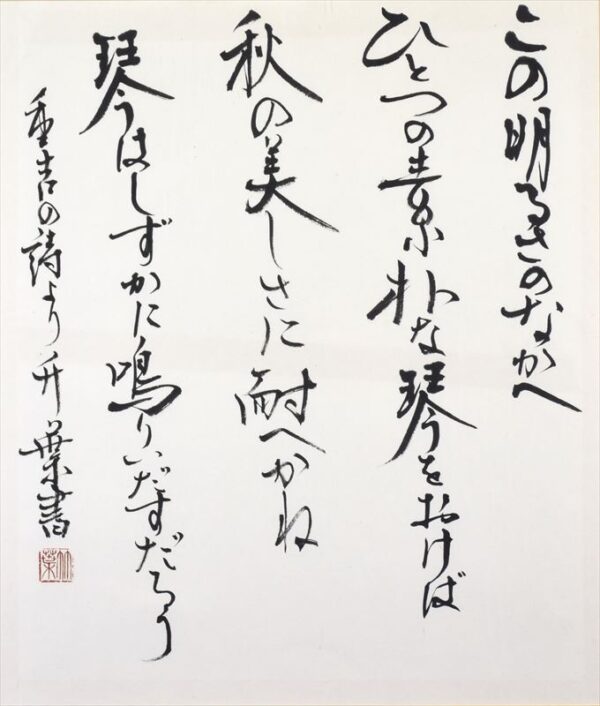 この明るさのなかへ
ひとつの素朴な琴をおけば
秋の美しさに耐へかね
琴はしずかに鳴りいだすだろう
重吉の詩より 竹葉書
竹葉